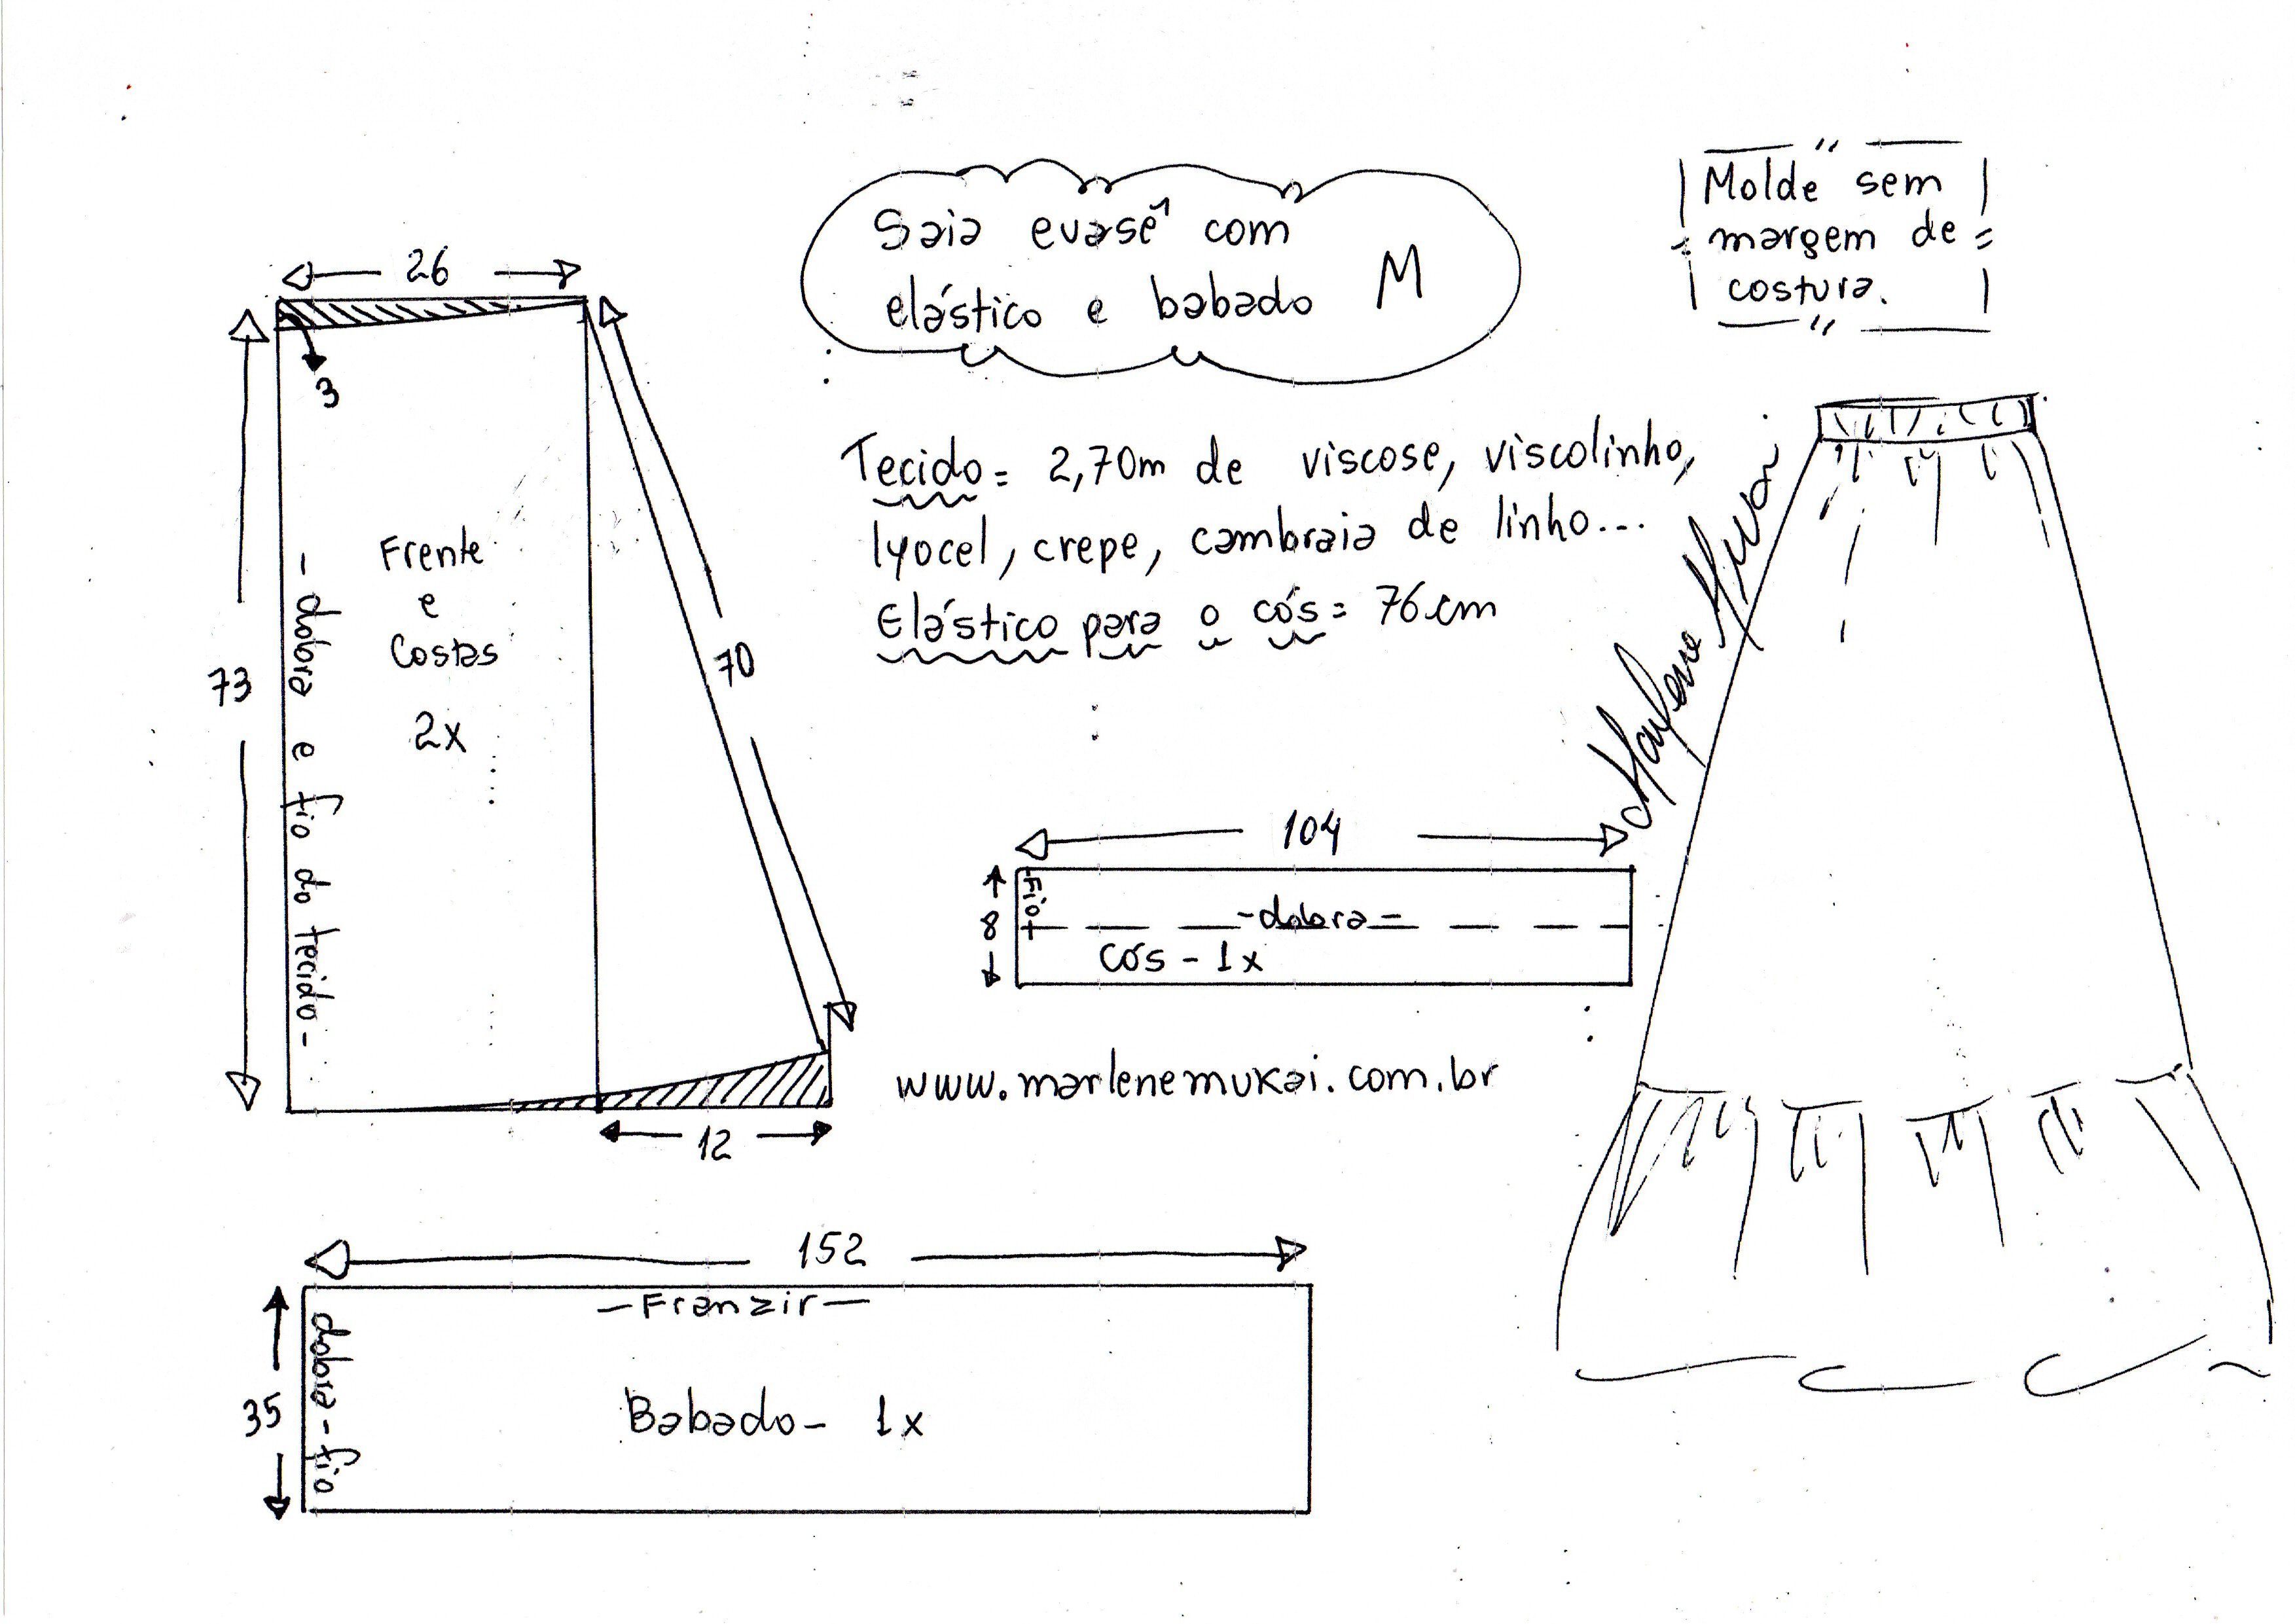 Saia evasê com
elástico e babado M
Molde sem
margem de
costura.
26
3
73
70
Frente
e
Costas
2x
- dobra e fio do tecido -
12
Tecido = 2,70m de viscose, viscolinho,
lyocel, crepe, cambraia de linho...
Elástico para o cós = 76cm
Marlene Mukai
104
8
Fio
- dobra =
Cós - 1x
www.marlenemukai.com.br
152
- Franzir -
35
dobra - fio
Babado - 1x